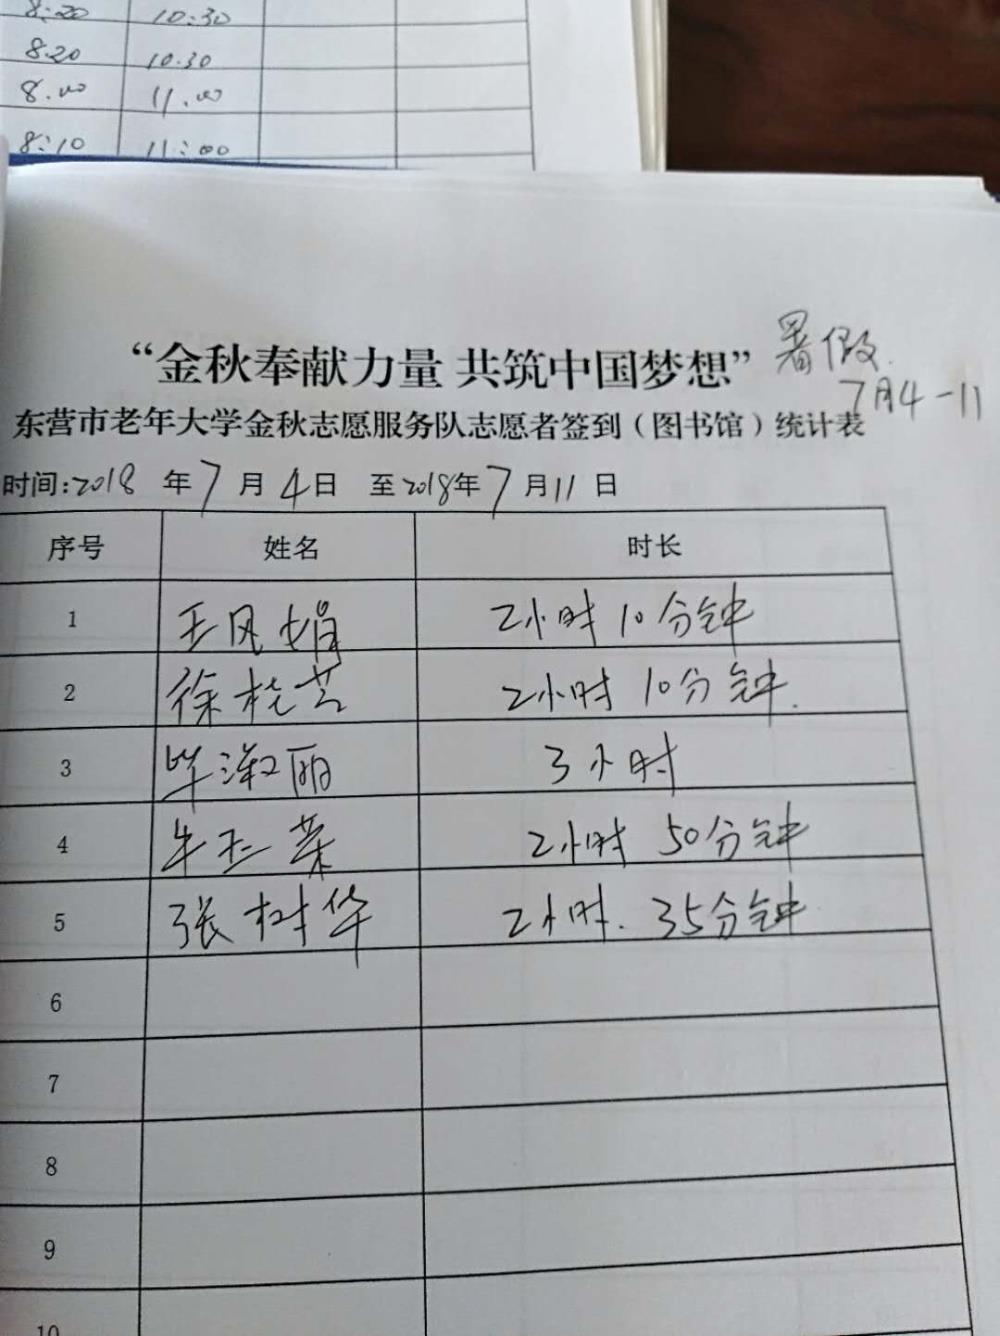 8:20 10:30
8.20 10.30
8.00 11.00
8:10 11:00
“金秋奉献力量 共筑中国梦想” 暑假.
7月4-11
东营市老年大学金秋志愿服务队志愿者签到（图书馆）统计表
时间:2018 年 7 月 4 日 至 2018 年 7 月 11 日
序号 姓名 时长
1 王风娟 2小时10分钟
2 徐桂芸 2小时10分钟.
3 毕淑丽 3小时
4 牛玉荣 2小时50分钟
5 张树华 2小时.35分钟
6
7
8
9
10